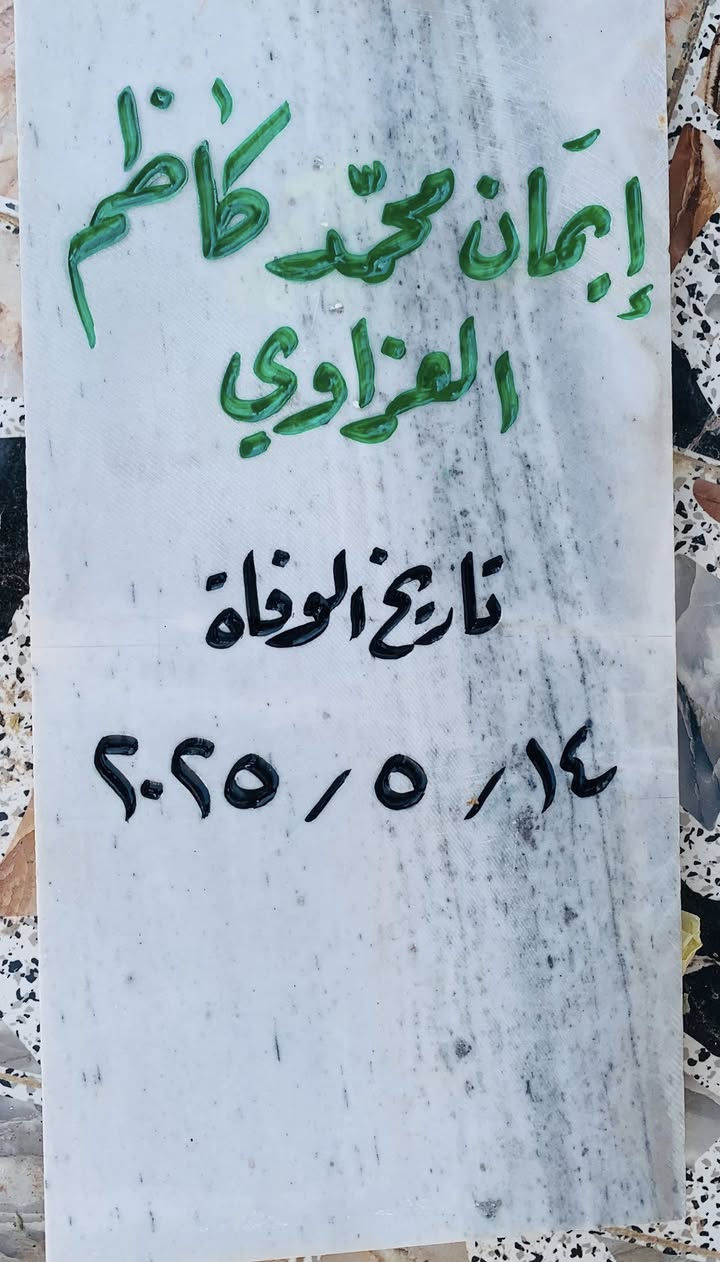 إيمان محمّد كاظم
العزاوي
تاريخ الوفاة
١٤ / ٥ / ٢٠٢٥